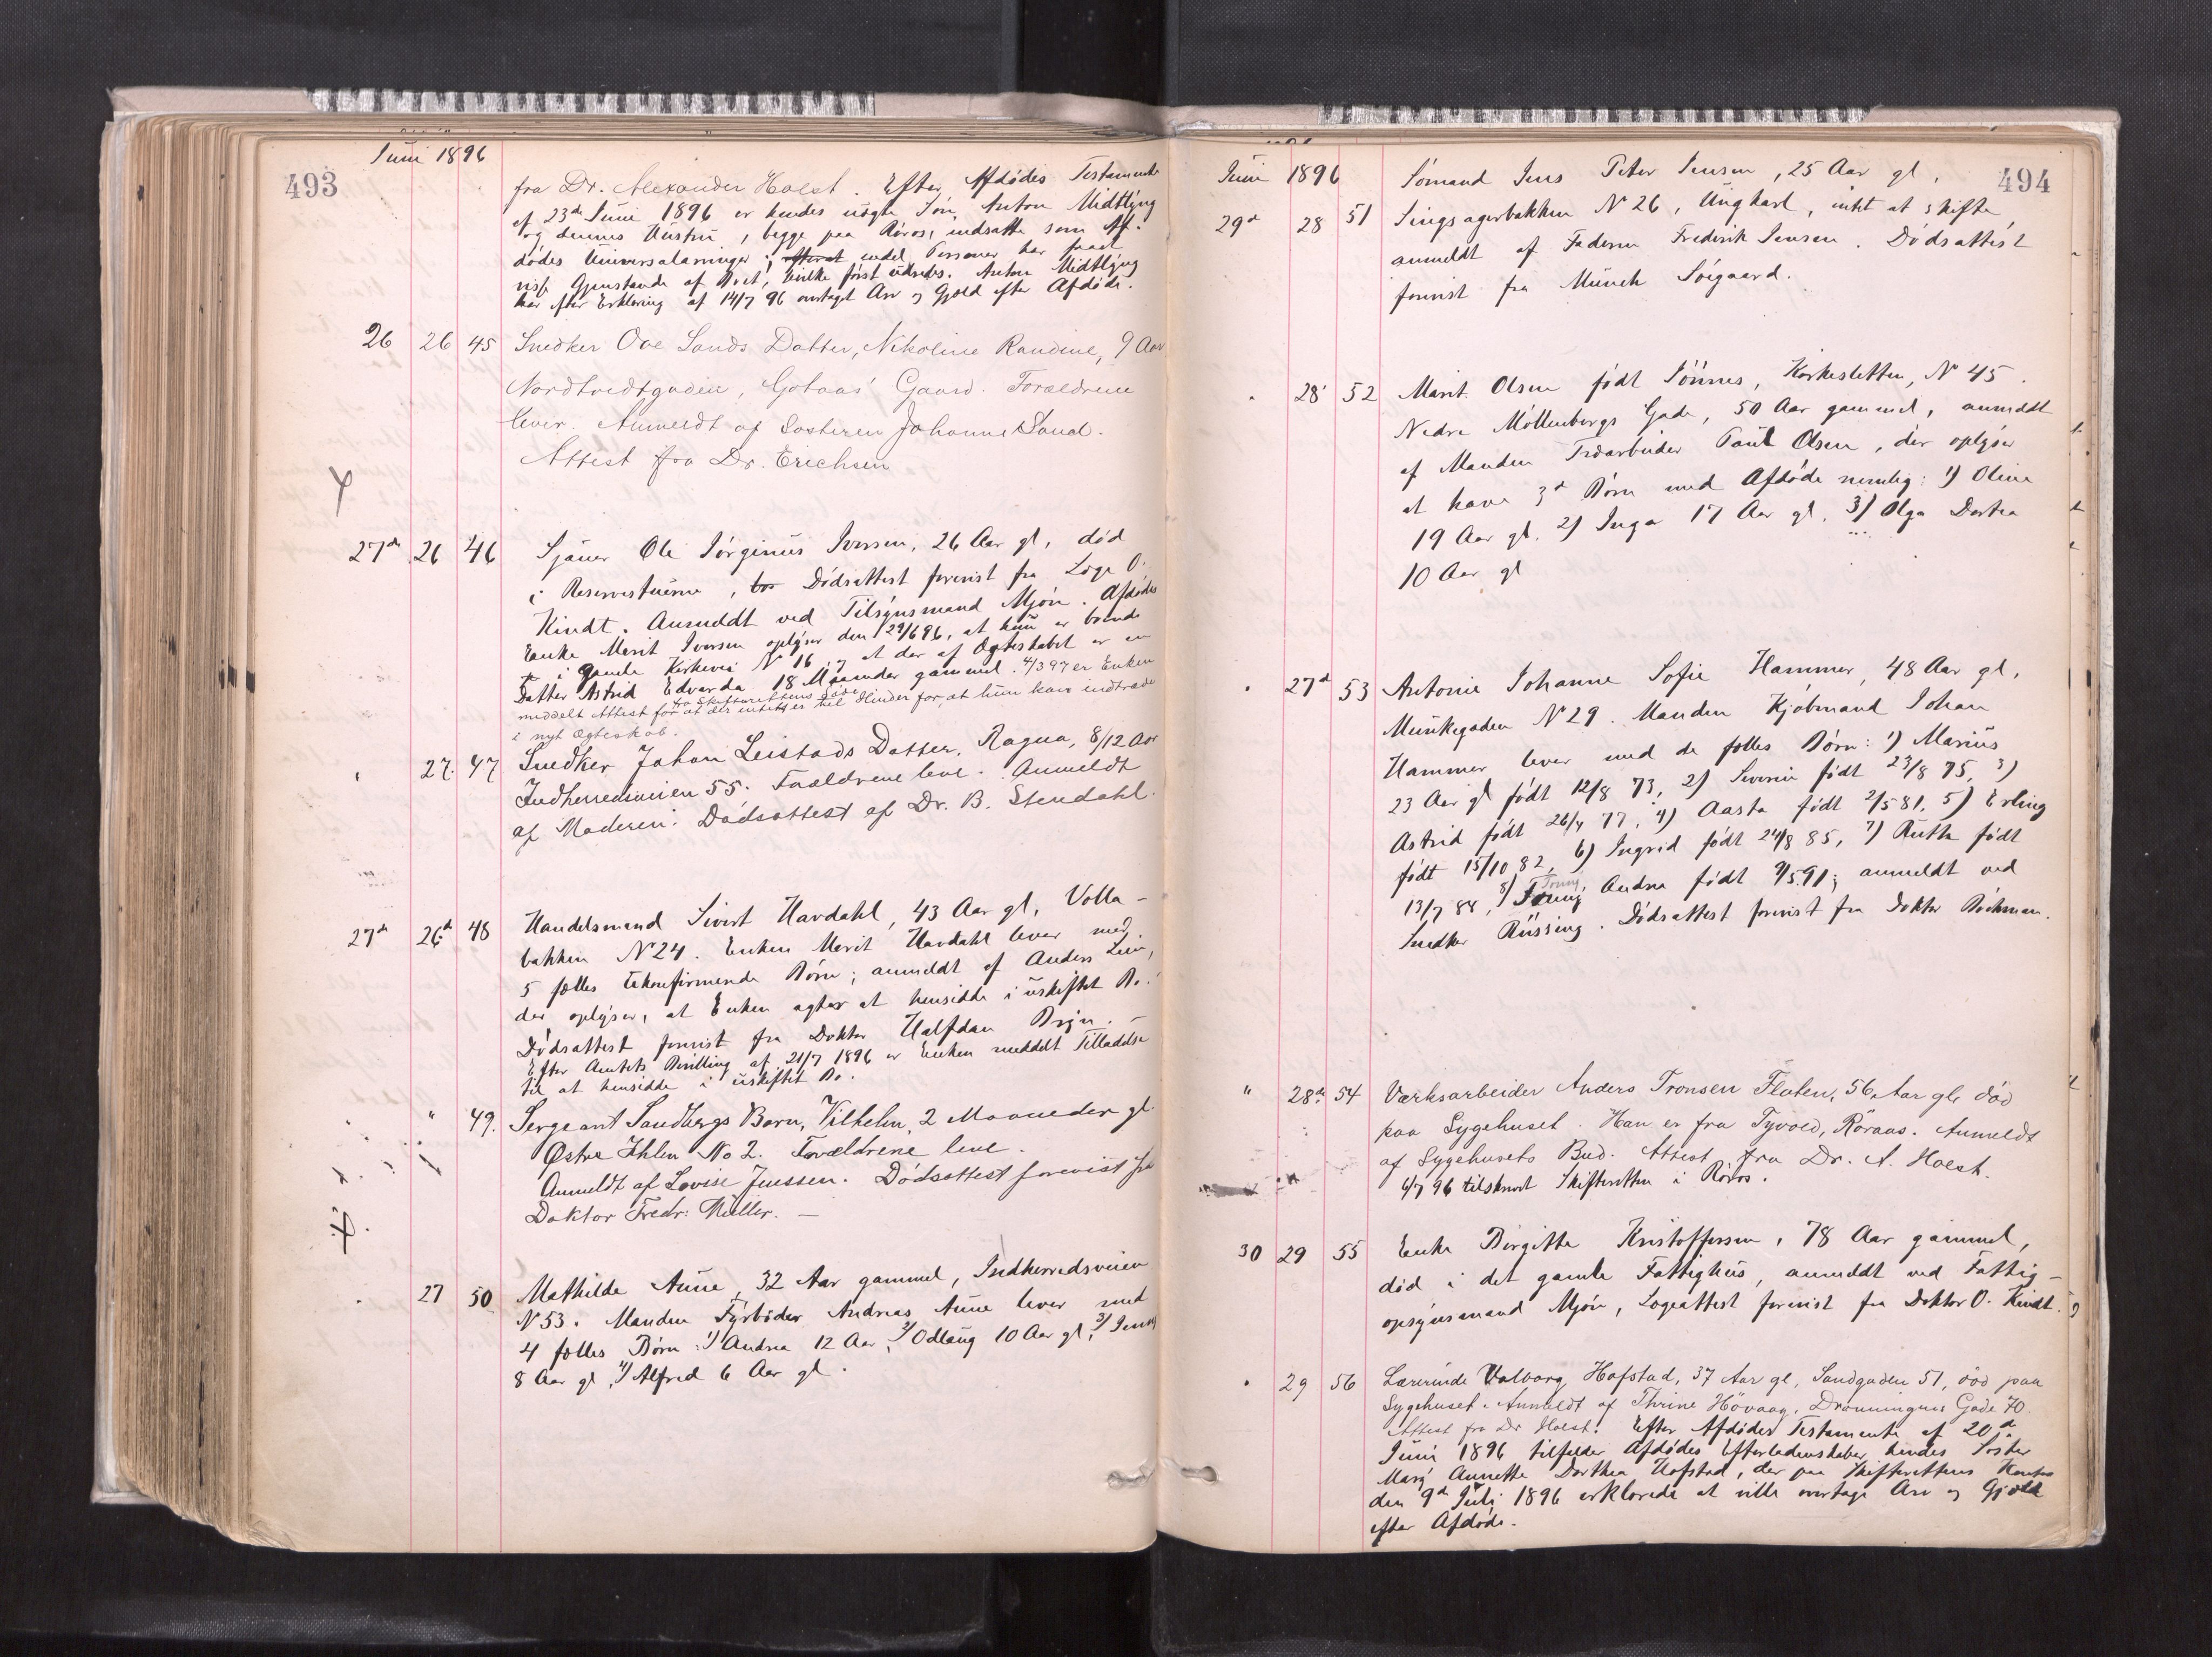 493
Juni 1896
fra Dr. Alexander Holst. Efter Afdødes Testamente
af 23de Juni 1896 er hendes uægte Søn, Anton Midtlyng
og dennes Hustru, begge paa Røros, indsatte som Af-
dødes Universalarvinger; endel Personer har faaet
visse Gjenstande af Boet, hvilke først udredes. Anton Midtlyng
har efter Erklæring af 14/7 96 overtaget Arv og Gjæld efter Afdøde.
26 26 45 Snedker Ove Sands Datter, Nikoline Randine, 9 Aar
Nordtvedtgaden, Gotaas' Gaard. Forældrene
lever. Anmeldt af Søsteren Johanne Sand.
Attest fra Dr. Erichsen
27de 26 46 Sjauer Ole Jørginus Iversen, 26 Aar gl, død
i Reservestuerne, Dødsattest forevist fra Læge O.
Kindt. Anmeldt ved Tilsynsmand Mjøn. Afdødes
Enke Marit Iversen oplyser den 29/6 96, at hun er boende
i gamle Kirkevei N 16, og at der af Ægteskabet er en
Datter Astrid Edvarda 18 Maaneder gammel. 4/3 97 er Enken
fra Skifterettens Side
meddelt Attest for at der intet er til Hinder for, at hun kan indtræde
i nyt Ægteskab.
" 27. 47 Snedker Johan Leistads Datter, Ragna, 8/12 Aar
Indherredsveien 55. Forældrene leve. Anmeldt
af Moderen. Dødsattest af Dr. B. Stendahl.
27de 26de 48 Handelsmand Sivert Havdahl, 43 Aar gl, Volla-
bakken N 24. Enken Marit Havdahl lever med
5 fælles ukonfirmerede Børn; anmeldt af Anders Lien,
der oplyser, at Enken agter at hensidde i uskiftet Bo.
Dødsattest forevist fra Doktor Halfdan Bryn. —
Efter Amtets Bevilling af 21/7 1896 er Enken meddelt Tilladelse
til at hensidde i uskiftet Bo.
" " 49. Sergeant Sandbergs Barn, Vilhelm, 2 Maaneder gl.
Østre Ihlen No 2. Forældrene leve.
Anmeldt af Lovise Jenssen. Dødsattest forevist fra
Doktor Fredr: Müller. —
" 27 50 Mathilde Aune, 32 Aar gammel, Indherredsveien
N 53. Manden Fyrbøder Andreas Aune lever med
4 fælles Børn: 1) Andrea 12 Aar, 2) Odlaug 10 Aar gl, 3) Jenny
8 Aar gl, 4) Alfred 6 Aar gl.
494
Juni 1896
29de 28 51 Sømand Jens Peter Jensen, 25 Aar gl,
Singsagerbakken N 26, Ungkarl, intet at skifte
anmeldt af Faderen Frederik Jensen. Dødsattest
forevist fra Münch Søegaard.
" 28 52 Marit Olsen født Sønnes, Kirkesletten, N 45
Nedre Møllenbergs Gade, 50 Aar gammel, anmeldt
af Manden Træarbeider Paul Olsen, der oplyser
at have 3de Børn med Afdøde nemlig: 1) Oline
19 Aar gl. 2) Inga 17 Aar gl. 3) Olga Dortea
10 Aar gl
" 27de 53 Antonie Johanne Sofie Hammer, 48 Aar gl,
Munkegaden N 29. Manden Kjøbmand Johan
Hammer lever med de fælles Børn: 1) Marius
23 Aar gl født 12/8 73, 2) Sverin født 23/8 75, 3)
Astrid født 26/4 77, 4) Aasta født 2/5 81, 5) Erling
født 15/10 82, 6) Ingrid født 24/8 85, 7) Ruth født
13/7 88, 8) Tonny Andrea født 9/5.91; anmeldt ved
Snedker Rüssing. Dødsattest forevist fra Doktor Böckman.
" 28de 54 Værksarbeider Anders Tronsen Flaten, 56 Aar gl, død
paa Sygehuset. Han er fra Tyvold, Røraas. Anmeldt
af Sygehusets Bud. Attest fra Dr. A. Holst.
4/7 96 tilskrevet Skifteretten i Røros.
30 29 55 Enke Birgitte Kristoffersen, 78 Aar gammel,
død i det gamle Fattighus, anmeldt ved Fattig-
opsynsmand Mjøn, Lægeattest forevist fra Doktor O. Kindt.
" 29 56 Lærerinde Valborg Hofstad, 37 Aar gl, Sandgaden 51, død paa
Sygehuset. Anmeldt af Thrine Høvaag, Dronningens Gade 70.
Attest fra Dr Holst. Efter Afdødes Testamente af 20de
Juni 1896 tilfalder Afdødes Efterladenskaber hendes Søster
Mary Annette Dorthea Hofstad, der paa Skifterettens Kontor
den 9de Juli 1896 erklærede at ville overtage Arv og Gjæld
efter Afdøde.